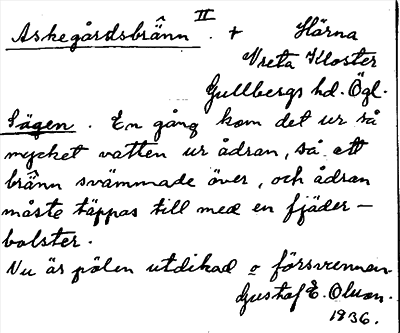 II
Askegårdsbränn. + Härna
Vreta Kloster
Gullbergs hd. Ögl.
Sägen. En gång kom det ur så
mycket vatten ur ådran, så att
bränn svämmade över, och ådran
måste täppas till med en fjäder-
bolster.
Nu är pölen utdikad o försvunnen
Gustaf E. Olson.
1936.